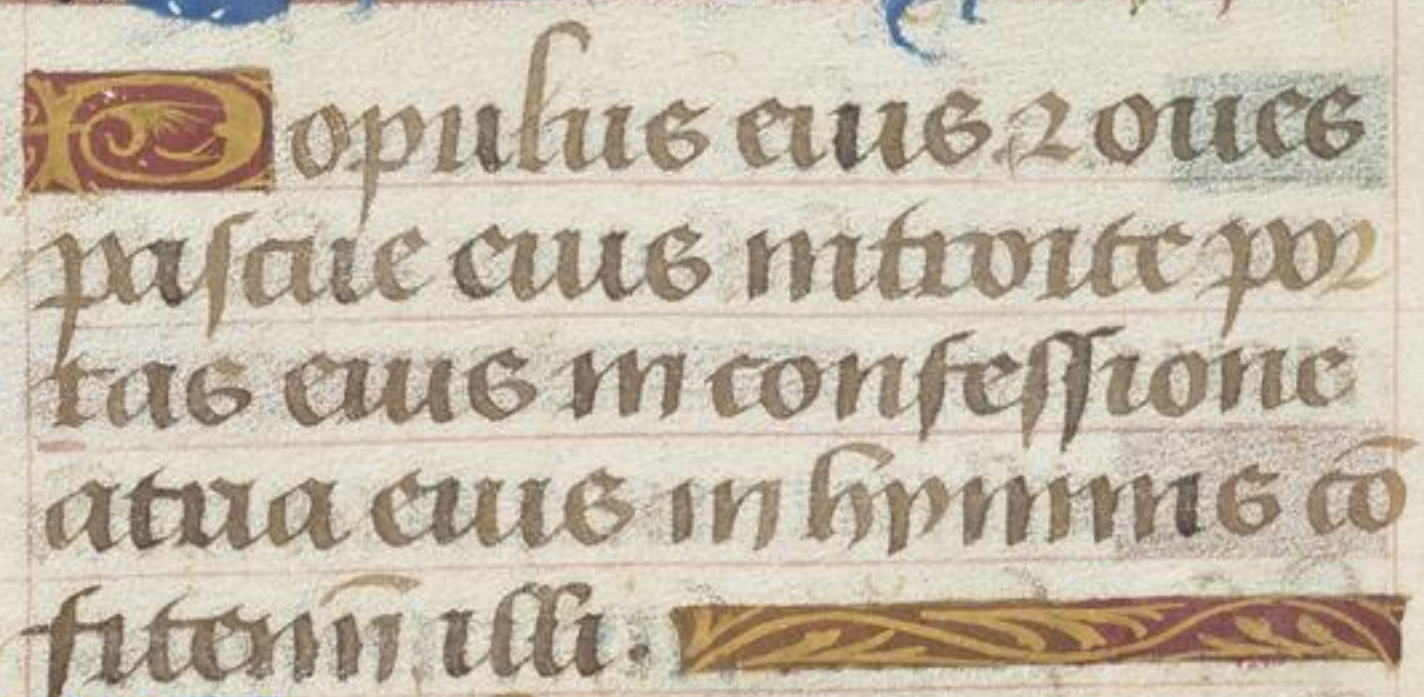 Populus eius ⁊ oues
pascue eius introite por
tas eius in confessione
atria eius in hymnis cō
fitemī illi.